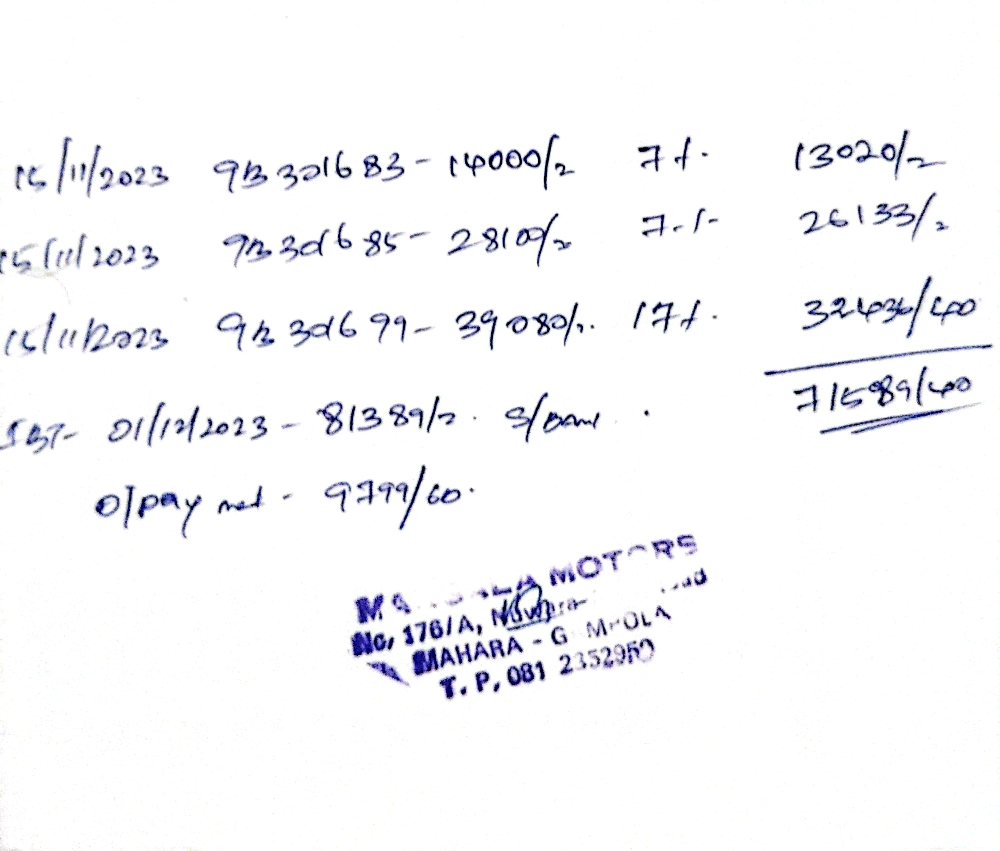 15/11/2023 9B301683 - 14000/= 7%. 13020/=
15/11/2023 9B301685 - 28100/= 7.%- 26133/=
15/11/2023 9B301699 - 39080/=. 17%. 32436/400
71589/400
01/12/2023 - 81389/=.
o/pay - 9799/60.
MOTORS
No, 176/A,
MAHARA - G MPOLA
T. P, 081 2352950